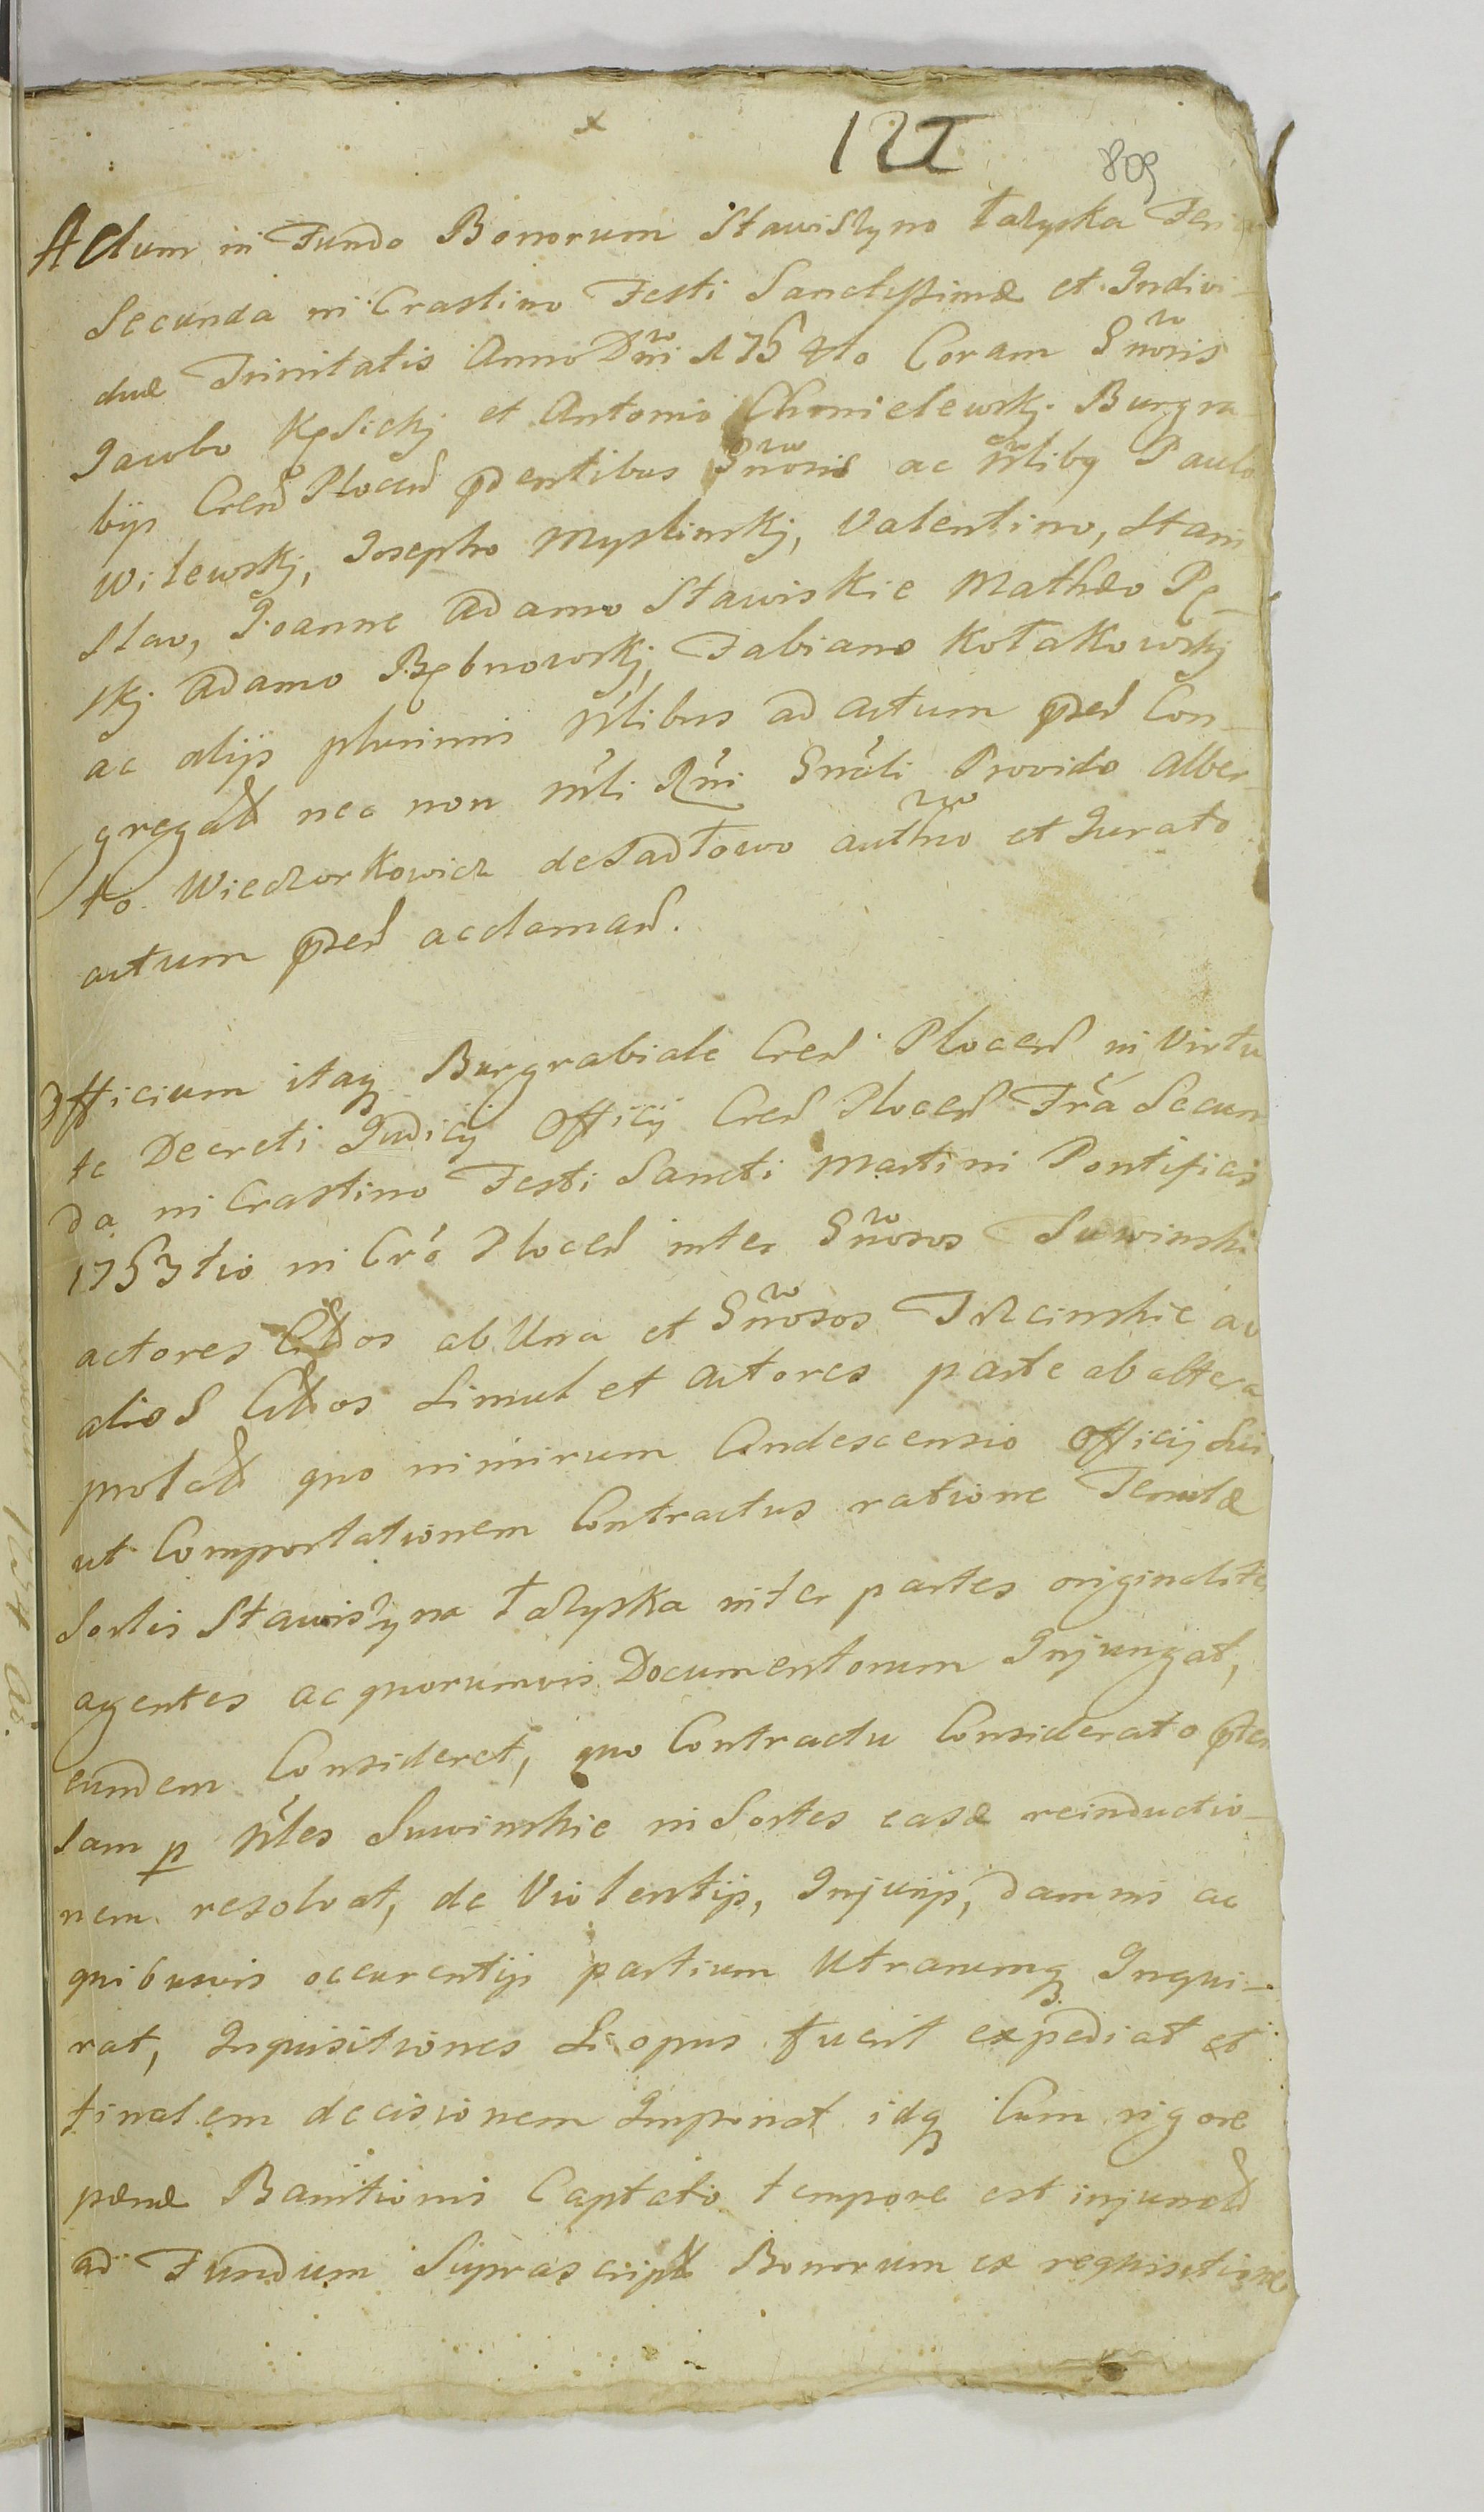 x
122
809
Actum in Fundo Bonorum Stawiszyno Łazyska Feria
Secunda in Crastino Festi Sanctissimæ et Indivi-
duæ Trinitatis Anno Dni 1754to Coram Gnosis
Jacobo Kęsickj et Antonio Chmielewskj Burgra-
bijs Cren Plocen pdentibus Gnosis ac Nlibq Paulo
Wilewskj, Josepho Myslinskj, Valentino, Stani
slao, Joanne Adamo Stawiskie Mathæo Pę-
skj Adamo Bębnowskj, Fabiano Kołakowskj
ac alijs plurimis Nlibus ad actum pden Con-
gregat nec non Mli Rni Gnāli Provido Alber-
to Wieczorkowicz de Sadłowo authno et Jurato
actum pden acclaman.
Officium itaq Burgrabiale Cren Plocen in Virtu
te Decreti Judicij Officij Cren Plocen Fra Secun
da in Crastino Festi Sancti Martini Pontificis
1753tio in Cro Plocen inter Gnosos Suwinski
actores Citos ab Una et Gnosos Trzcinskie ac
alios Citos simul et actores parte ab altera
prolat quo nimirum Condescensio Officij sui
ut Comportationem Contractus ratione Tenutæ
Sortis Stawiszyna Łazyska inter partes originaliter
agentes ac quorumvis Documentorum Injungat,
eundem Consideret, quo Contractu Considerato pten
sam p Nles Suwinskie in Sortes easd reinductio-
nem resolvat, de Violentijs, Injurijs, damnis ac
quibusvis occurentijs partium Utrarumq Inqui-
rat, Inquisitiones si opus fuerit expediat et
finalem decisionem Imponat idq Cum rigore
pænæ Banitionis Captato tempore est injunct
ad Fundum Suprascript Bonorum ex requisitione